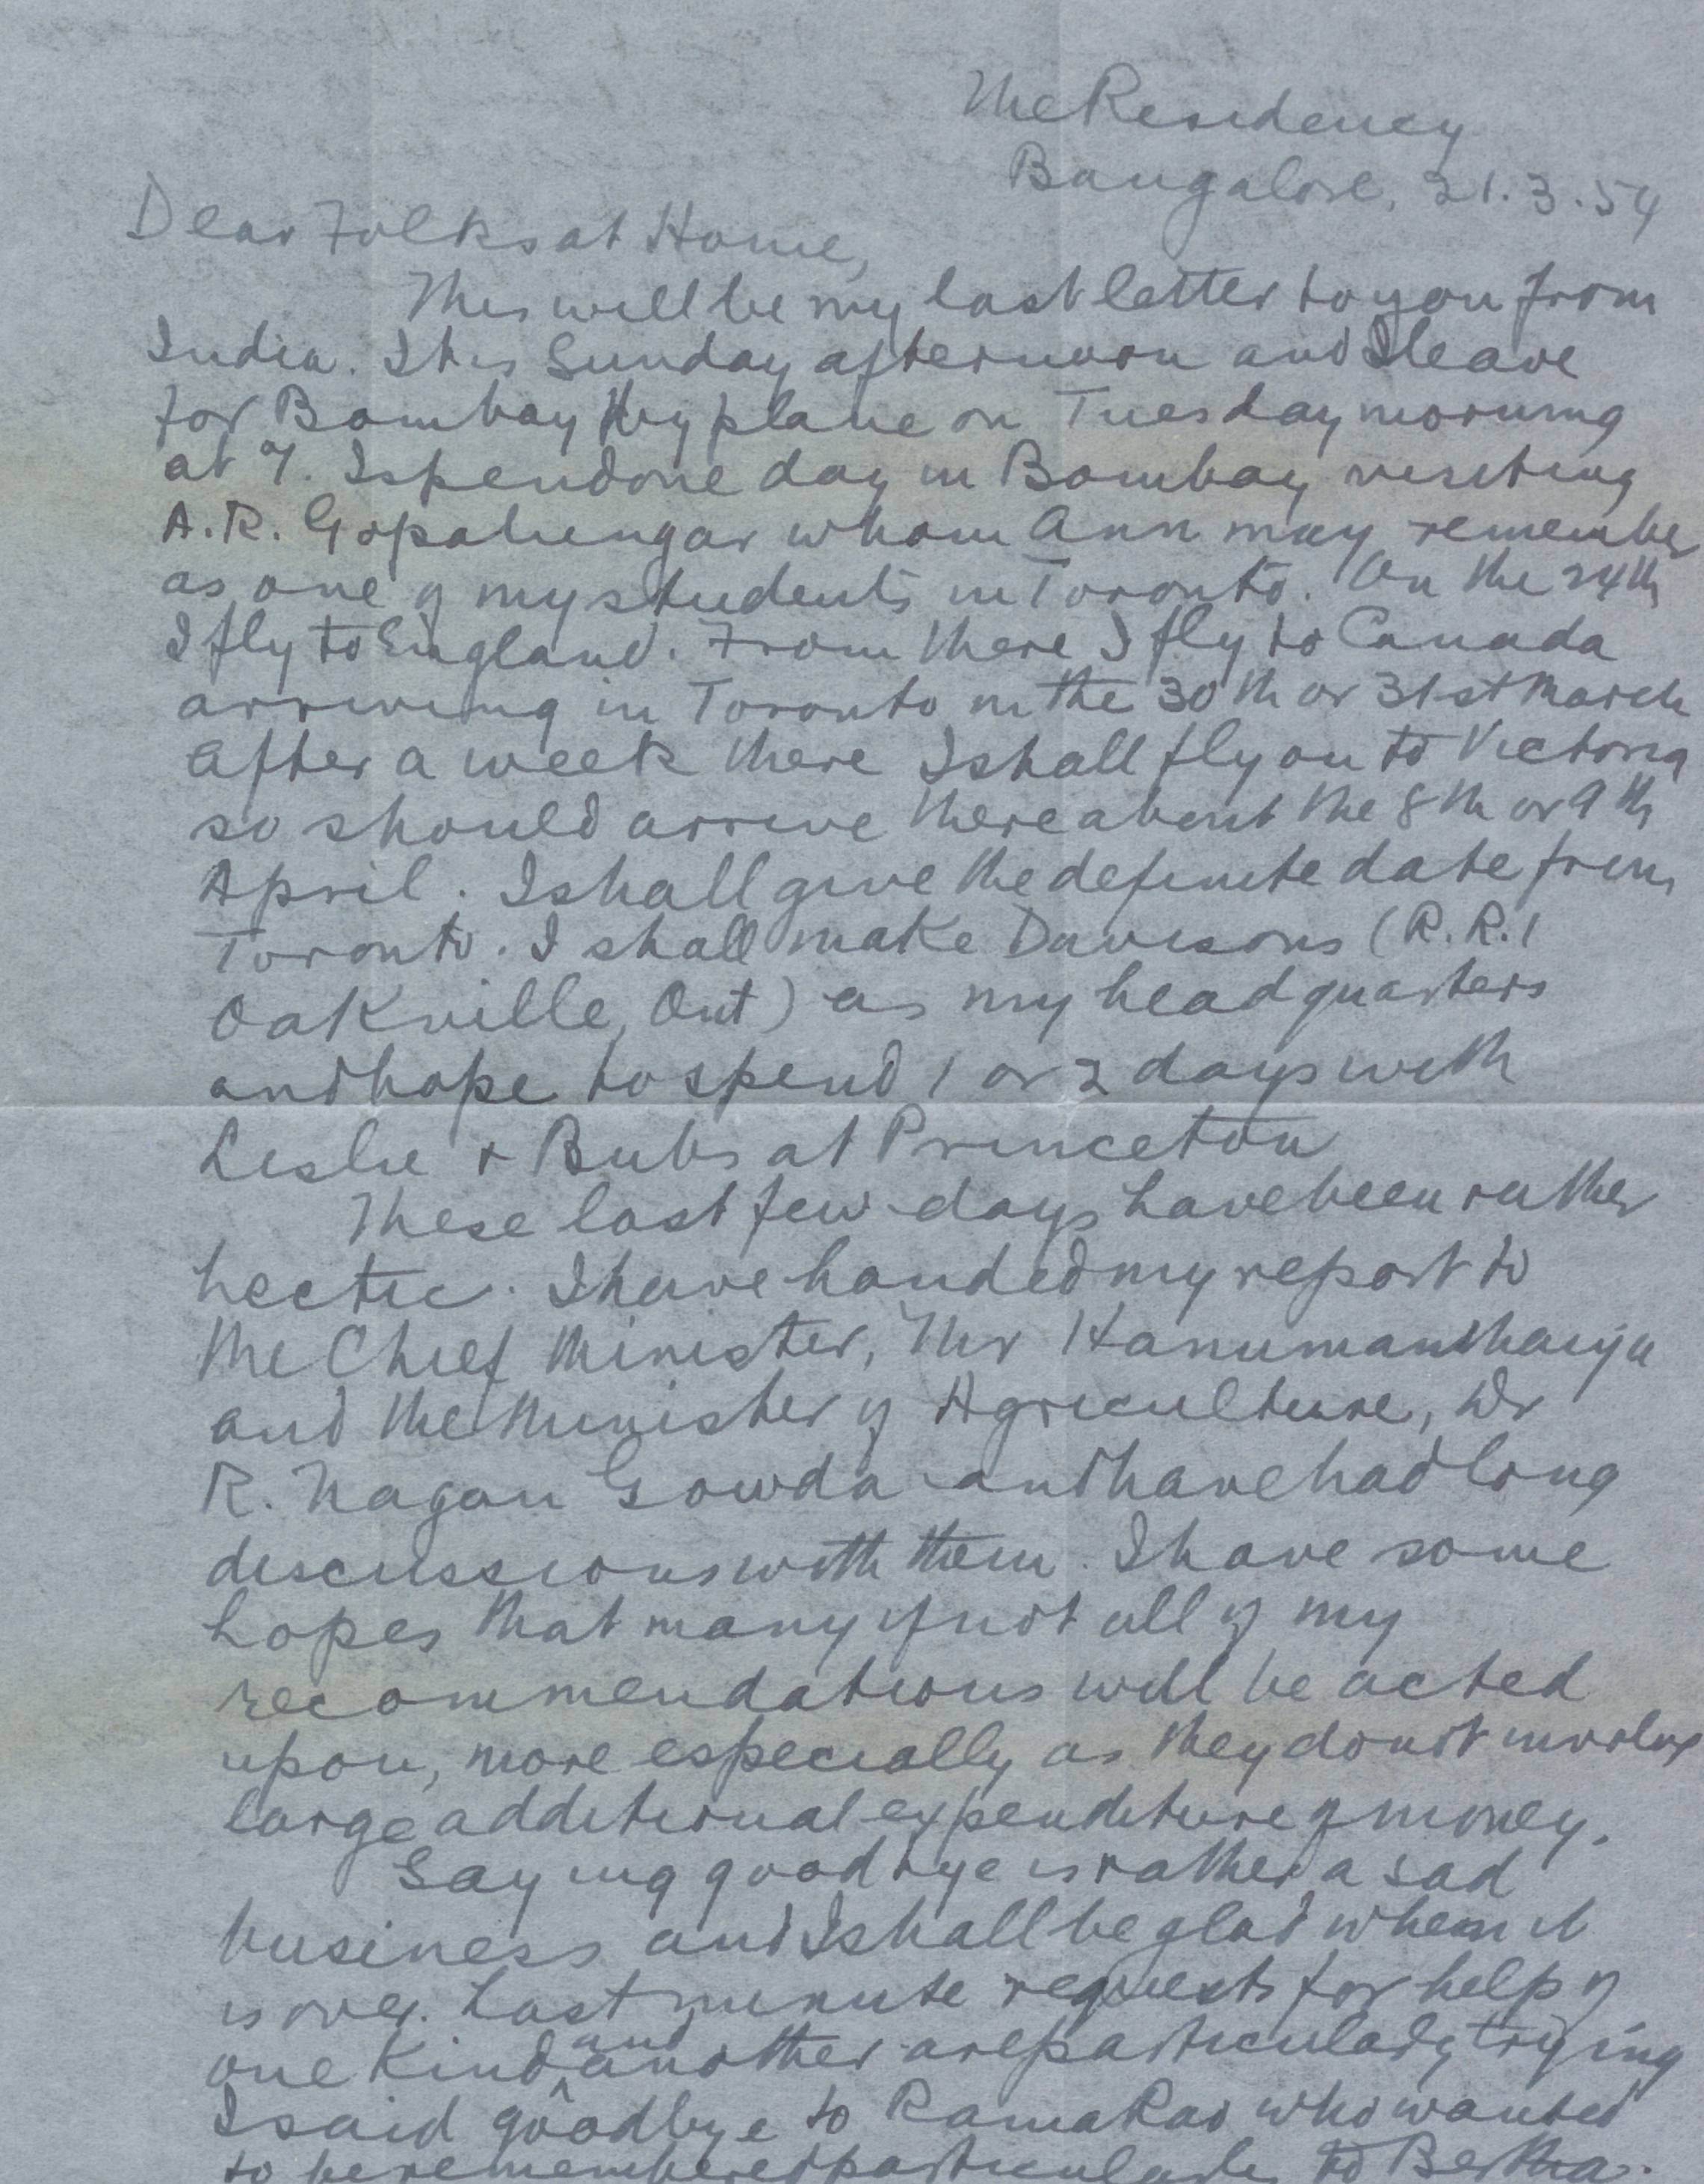 The Residency
Bangalore, 21.3.54
Dear Folks at Home,
This will be my last letter to you from
India. It is Sunday afternoon and I leave
for Bombay by plane on Tuesday morning
at 7. I spend one day in Bombay visiting
A.R. Gopaliengar whom Ann may remember
as one of my students in Toronto. On the 24th
I fly to England. From there I fly to Canada
arriving in Toronto on the 30th or 31st March
After a week there I shall fly on to Victoria
so should arrive there about the 8th or 9th
April. I shall give the definite date from
Toronto. I shall make Davisons (R.R.1
Oakville, Ont) as my headquarters
and hope to spend 1 or 2 days with
Leslie + Bubs at Princeton
These last few days have been rather
hectic. I have handed my report to
the Chief Minister, Mr Hanumanthaiya
and the Minister of Agriculture, Dr
R. Nagan Gowda and have had long
discussions with them. I have some
hopes that many if not all of my
recommendations will be acted
upon, more especially as they do not involve
large additional expenditure of money.
Saying goodbye is rather a sad
business and I shall be glad when it
is over. Last minute requests for help of
one kind and another are particularly trying
I said goodbye to Rama Rao who wanted
to be remembered particularly to